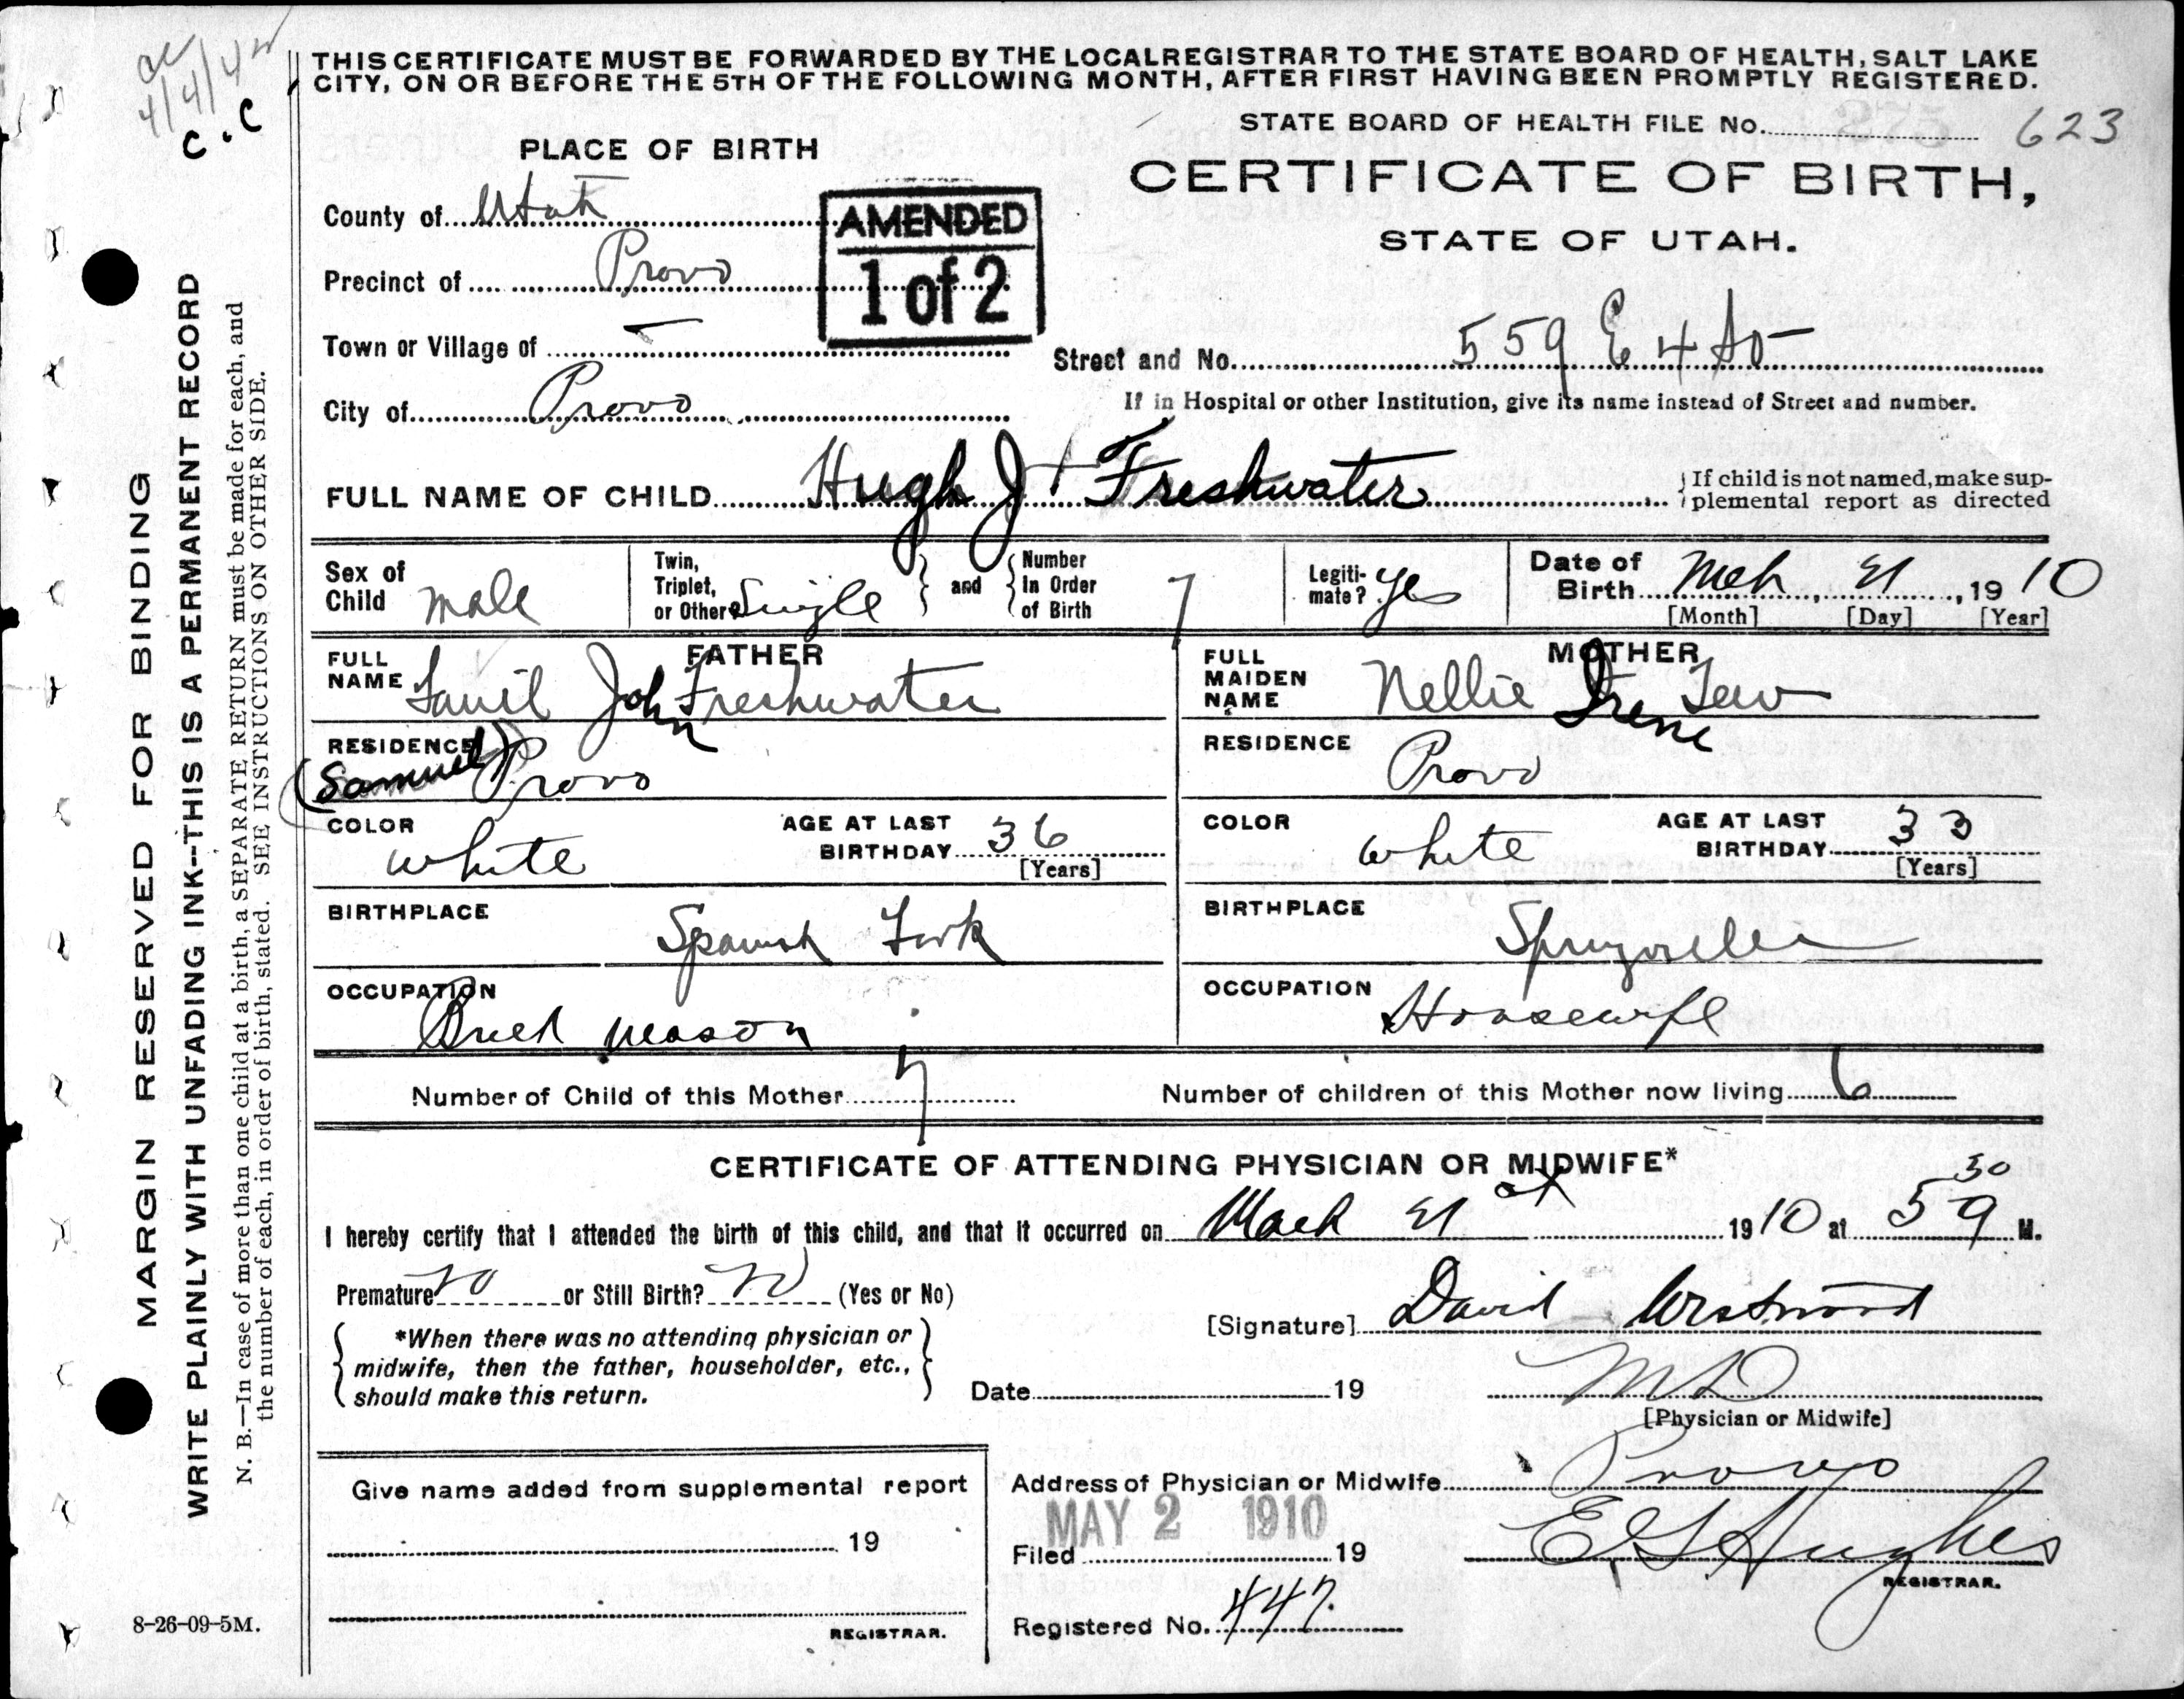 ac
4/4/42
C.C
THIS CERTIFICATE MUST BE FORWARDED BY THE LOCAL REGISTRAR TO THE STATE BOARD OF HEALTH, SALT LAKE
CITY, ON OR BEFORE THE 5TH OF THE FOLLOWING MONTH, AFTER FIRST HAVING BEEN PROMPTLY REGISTERED.
STATE BOARD OF HEALTH FILE No. 623
PLACE OF BIRTH
CERTIFICATE OF BIRTH,
STATE OF UTAH.
County of Utah
AMENDED
1 of 2
Precinct of Provo
Town or Village of —
Street and No. 559 E 4 So
City of Provo
If in Hospital or other Institution, give its name instead of Street and number.
FULL NAME OF CHILD Hugh J. Freshwater
{If child is not named, make sup-
plemental report as directed
Sex of Child male
Twin, Triplet, or Other? Single } and { Number In Order of Birth 7
Legiti-mate? Yes
Date of Birth Mch 21, 1910
[Month] [Day] [Year]
FATHER
FULL NAME John Freshwater
(Samuel)
RESIDENCE Provo
COLOR white
AGE AT LAST BIRTHDAY 36
[Years]
BIRTHPLACE Spanish Fork
OCCUPATION Brick mason
MOTHER
FULL MAIDEN NAME Nellie Irene Tew
RESIDENCE Provo
COLOR white
AGE AT LAST BIRTHDAY 33
[Years]
BIRTHPLACE Springville
OCCUPATION Housewife
Number of Child of this Mother 7
Number of children of this Mother now living 6
CERTIFICATE OF ATTENDING PHYSICIAN OR MIDWIFE*
I hereby certify that I attended the birth of this child, and that it occurred on Mach 21 st 1910 at 5 30 a M.
Premature no or Still Birth? no (Yes or No)
{ *When there was no attending physician or
midwife, then the father, householder, etc.,
should make this return. }
[Signature] David Westwood
Date 19
MD
[Physician or Midwife]
Give name added from supplemental report
19
REGISTRAR.
Address of Physician or Midwife Provo
MAY 2 1910
Filed 19
E G Hughes
REGISTRAR.
Registered No. 447.
8-26-09-5M.
MARGIN RESERVED FOR BINDING
WRITE PLAINLY WITH UNFADING INK--THIS IS A PERMANENT RECORD
N. B.—In case of more than one child at a birth, a SEPARATE RETURN must be made for each, and
the number of each, in order of birth, stated. SEE INSTRUCTIONS ON OTHER SIDE.